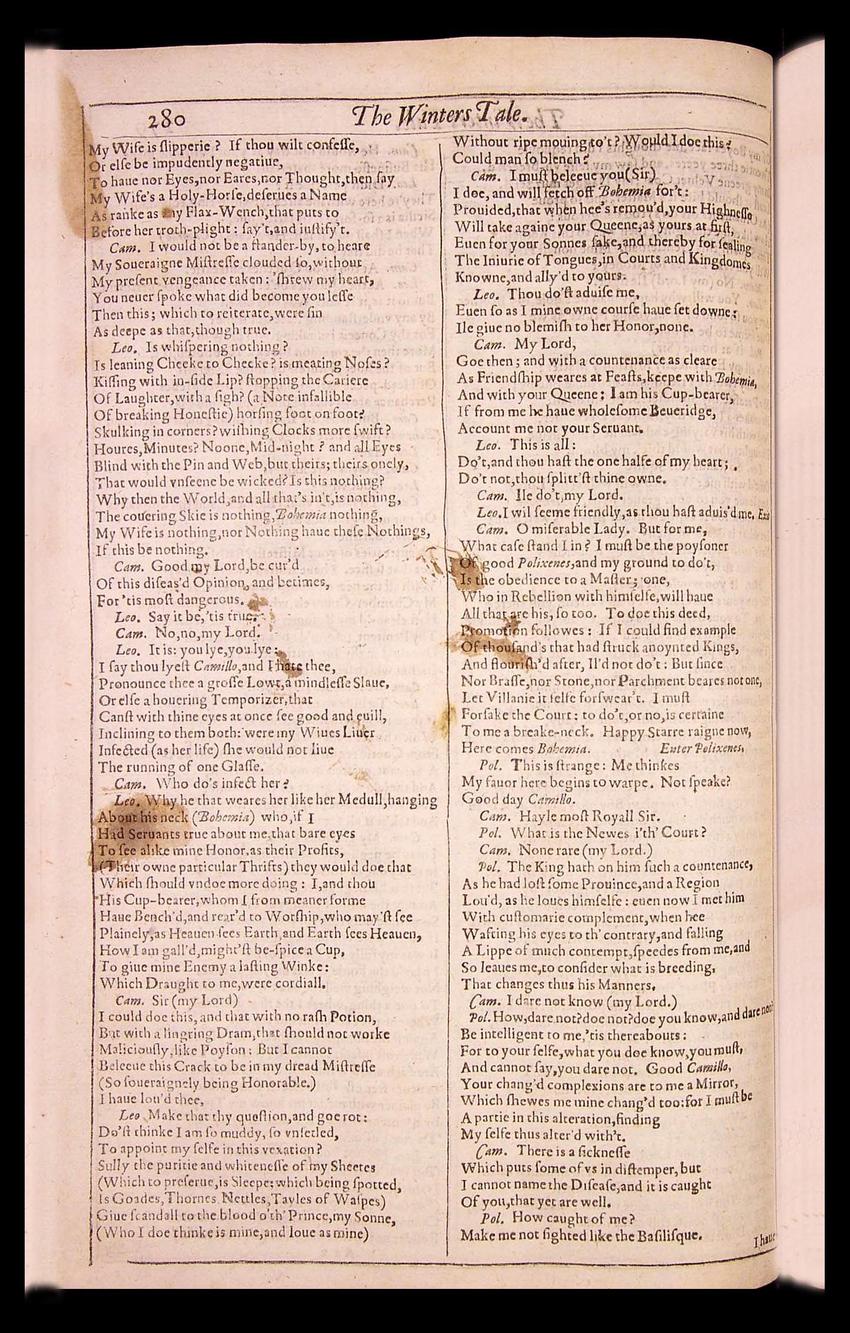 280
The Winters Tale.
My Wife is slipperie? If thou wilt confesse,
Or else be impudently negatiue,
To haue nor Eyes, nor Eares, nor Thought, then say
My Wife's a Holy-Horse, deserues a Name
As ranke as any Flax-Wench, that puts to
Before her troth-plight: say't, and iustify't.
Cam. I would not be a stander-by, to heare
My Soueraigne Mistresse clouded so, without
My present vengeance taken: 'shrew my heart,
You neuer spoke what did become you lesse
Then this; which to reiterate, were sin
As deepe as that, though true.
Leo. Is whispering nothing?
Is leaning Cheeke to Cheeke? is meating Noses?
Kissing with in-side Lip? stopping the Cariere
Of Laughter, with a sigh? (a Note infallible
Of breaking Honestie) horsing foot on foot?
Skulking in corners? wishing Clocks more swift?
Houres, Minutes? Noone, Mid-night? and all Eyes
Blind with the Pin and Web, but theirs; theirs onely,
That would vnseene be wicked? Is this nothing?
Why then the World, and all that's in't, is nothing,
The couering Skie is nothing, Bohemia nothing,
My Wife is nothing, nor Nothing haue these Nothings,
If this be nothing.
Cam. Good my Lord, be cur'd
Of this diseas'd Opinion, and betimes,
For 'tis most dangerous.
Leo. Say it be, 'tis true.
Cam. No, no, my Lord.
Leo. It is: you lye, you lye:
I say thou lyest Camillo, and I hate thee,
Pronounce thee a grosse Lowt, a mindlesse Slaue,
Or else a houering Temporizer, that
Canst with thine eyes at once see good and euill,
Inclining to them both: were my Wiues Liuer
Infected (as her life) she would not liue
The running of one Glasse.
Cam. Who do's infect her?
Leo. Why he that weares her like her Medull, hanging
About his neck (Bohemia) who, if I
Had Seruants true about me, that bare eyes
To see alike mine Honor, as their Profits,
(Their owne particular Thrifts) they would doe that
Which should vndoe more doing: I, and thou
His Cup-bearer, whom I from meaner forme
Haue Bench'd, and rear'd to Worship, who may'st see
Plainely, as Heauen sees Earth, and Earth sees Heauen,
How I am gall'd, might'st be-spice a Cup,
To giue mine Enemy a lasting Winke:
Which Draught to me, were cordiall.
Cam. Sir (my Lord)
I could doe this, and that with no rash Potion,
But with a lingring Dram, that should not worke
Maliciously, like Poyson: But I cannot
Beleeue this Crack to be in my dread Mistresse
(So soueraignely being Honorable.)
I haue lou'd thee,
Leo Make that thy question, and goe rot:
Do'st thinke I am so muddy, so vnsetled,
To appoint my selfe in this vexation?
Sully the puritie and whitenesse of my Sheetes
(Which to preserue, is Sleepe; which being spotted,
Is Goades, Thornes Nettles, Tayles of Waspes)
Giue scandall to the blood o'th' Prince, my Sonne,
(Who I doe thinke is mine, and loue as mine)
Without ripe mouing to't? Would I doe this?
Could man so blench?
Cam. I must beleeue you (Sir)
I doe, and will fetch off Bohemia for't:
Prouided, that when hee's remou'd, your Highnesse
Will take againe your Queene, as yours at first,
Euen for your Sonnes sake, and thereby for sealing
The Iniurie of Tongues, in Courts and Kingdomes
Knowne, and ally'd to yours.
Leo. Thou do'st aduise me,
Euen so as I mine owne course haue set downe:
Ile giue no blemish to her Honor, none.
Cam. My Lord,
Goe then; and with a countenance as cleare
As Friendship weares at Feasts, keepe with Bohemia,
And with your Queene: I am his Cup-bearer,
If from me he haue wholesome Beueridge,
Account me not your Seruant.
Leo. This is all:
Do't, and thou hast the one halfe of my heart;
Do't not, thou splitt'st thine owne.
Cam. Ile do't, my Lord.
Leo. I wil seeme friendly, as thou hast aduis'd me. Exit
Cam. O miserable Lady. But for me,
What case stand I in? I must be the poysoner
Of good Polixenes, and my ground to do't,
Is the obedience to a Master; one,
Who in Rebellion with himselfe, will haue
All that are his, so too. To doe this deed,
Promotion followes: If I could find example
Of thousand's that had struck anoynted Kings,
And flourish'd after, Il'd not do't: But since
Nor Brasse, nor Stone, nor Parchment beares not one,
Let Villanie it selfe forswear't. I must
Forsake the Court: to do't, or no, is certaine
To me a breake-neck. Happy Starre raigne now,
Here comes Bohemia. Enter Polixenes.
Pol. This is strange: Me thinkes
My fauor here begins to warpe. Not speake?
Good day Camillo.
Cam. Hayle most Royall Sir.
Pol. What is the Newes i'th' Court?
Cam. None rare (my Lord.)
Pol. The King hath on him such a countenance,
As he had lost some Prouince, and a Region
Lou'd, as he loues himselfe: euen now I met him
With customarie complement, when hee
Wafting his eyes to th' contrary, and falling
A Lippe of much contempt, speedes from me, and
So leaues me, to consider what is breeding,
That changes thus his Manners.
Cam. I dare not know (my Lord.)
Pol. How, dare not? doe not? doe you know, and dare not?
Be intelligent to me, 'tis thereabouts:
For to your selfe, what you doe know, you must,
And cannot say, you dare not. Good Camillo,
Your chang'd complexions are to me a Mirror,
Which shewes me mine chang'd too: for I must be
A partie in this alteration, finding
My selfe thus alter'd with't.
Cam. There is a sicknesse
Which puts some of vs in distemper, but
I cannot name the Disease, and it is caught
Of you, that yet are well.
Pol. How caught of me?
Make me not sighted like the Basilisque.
I haue